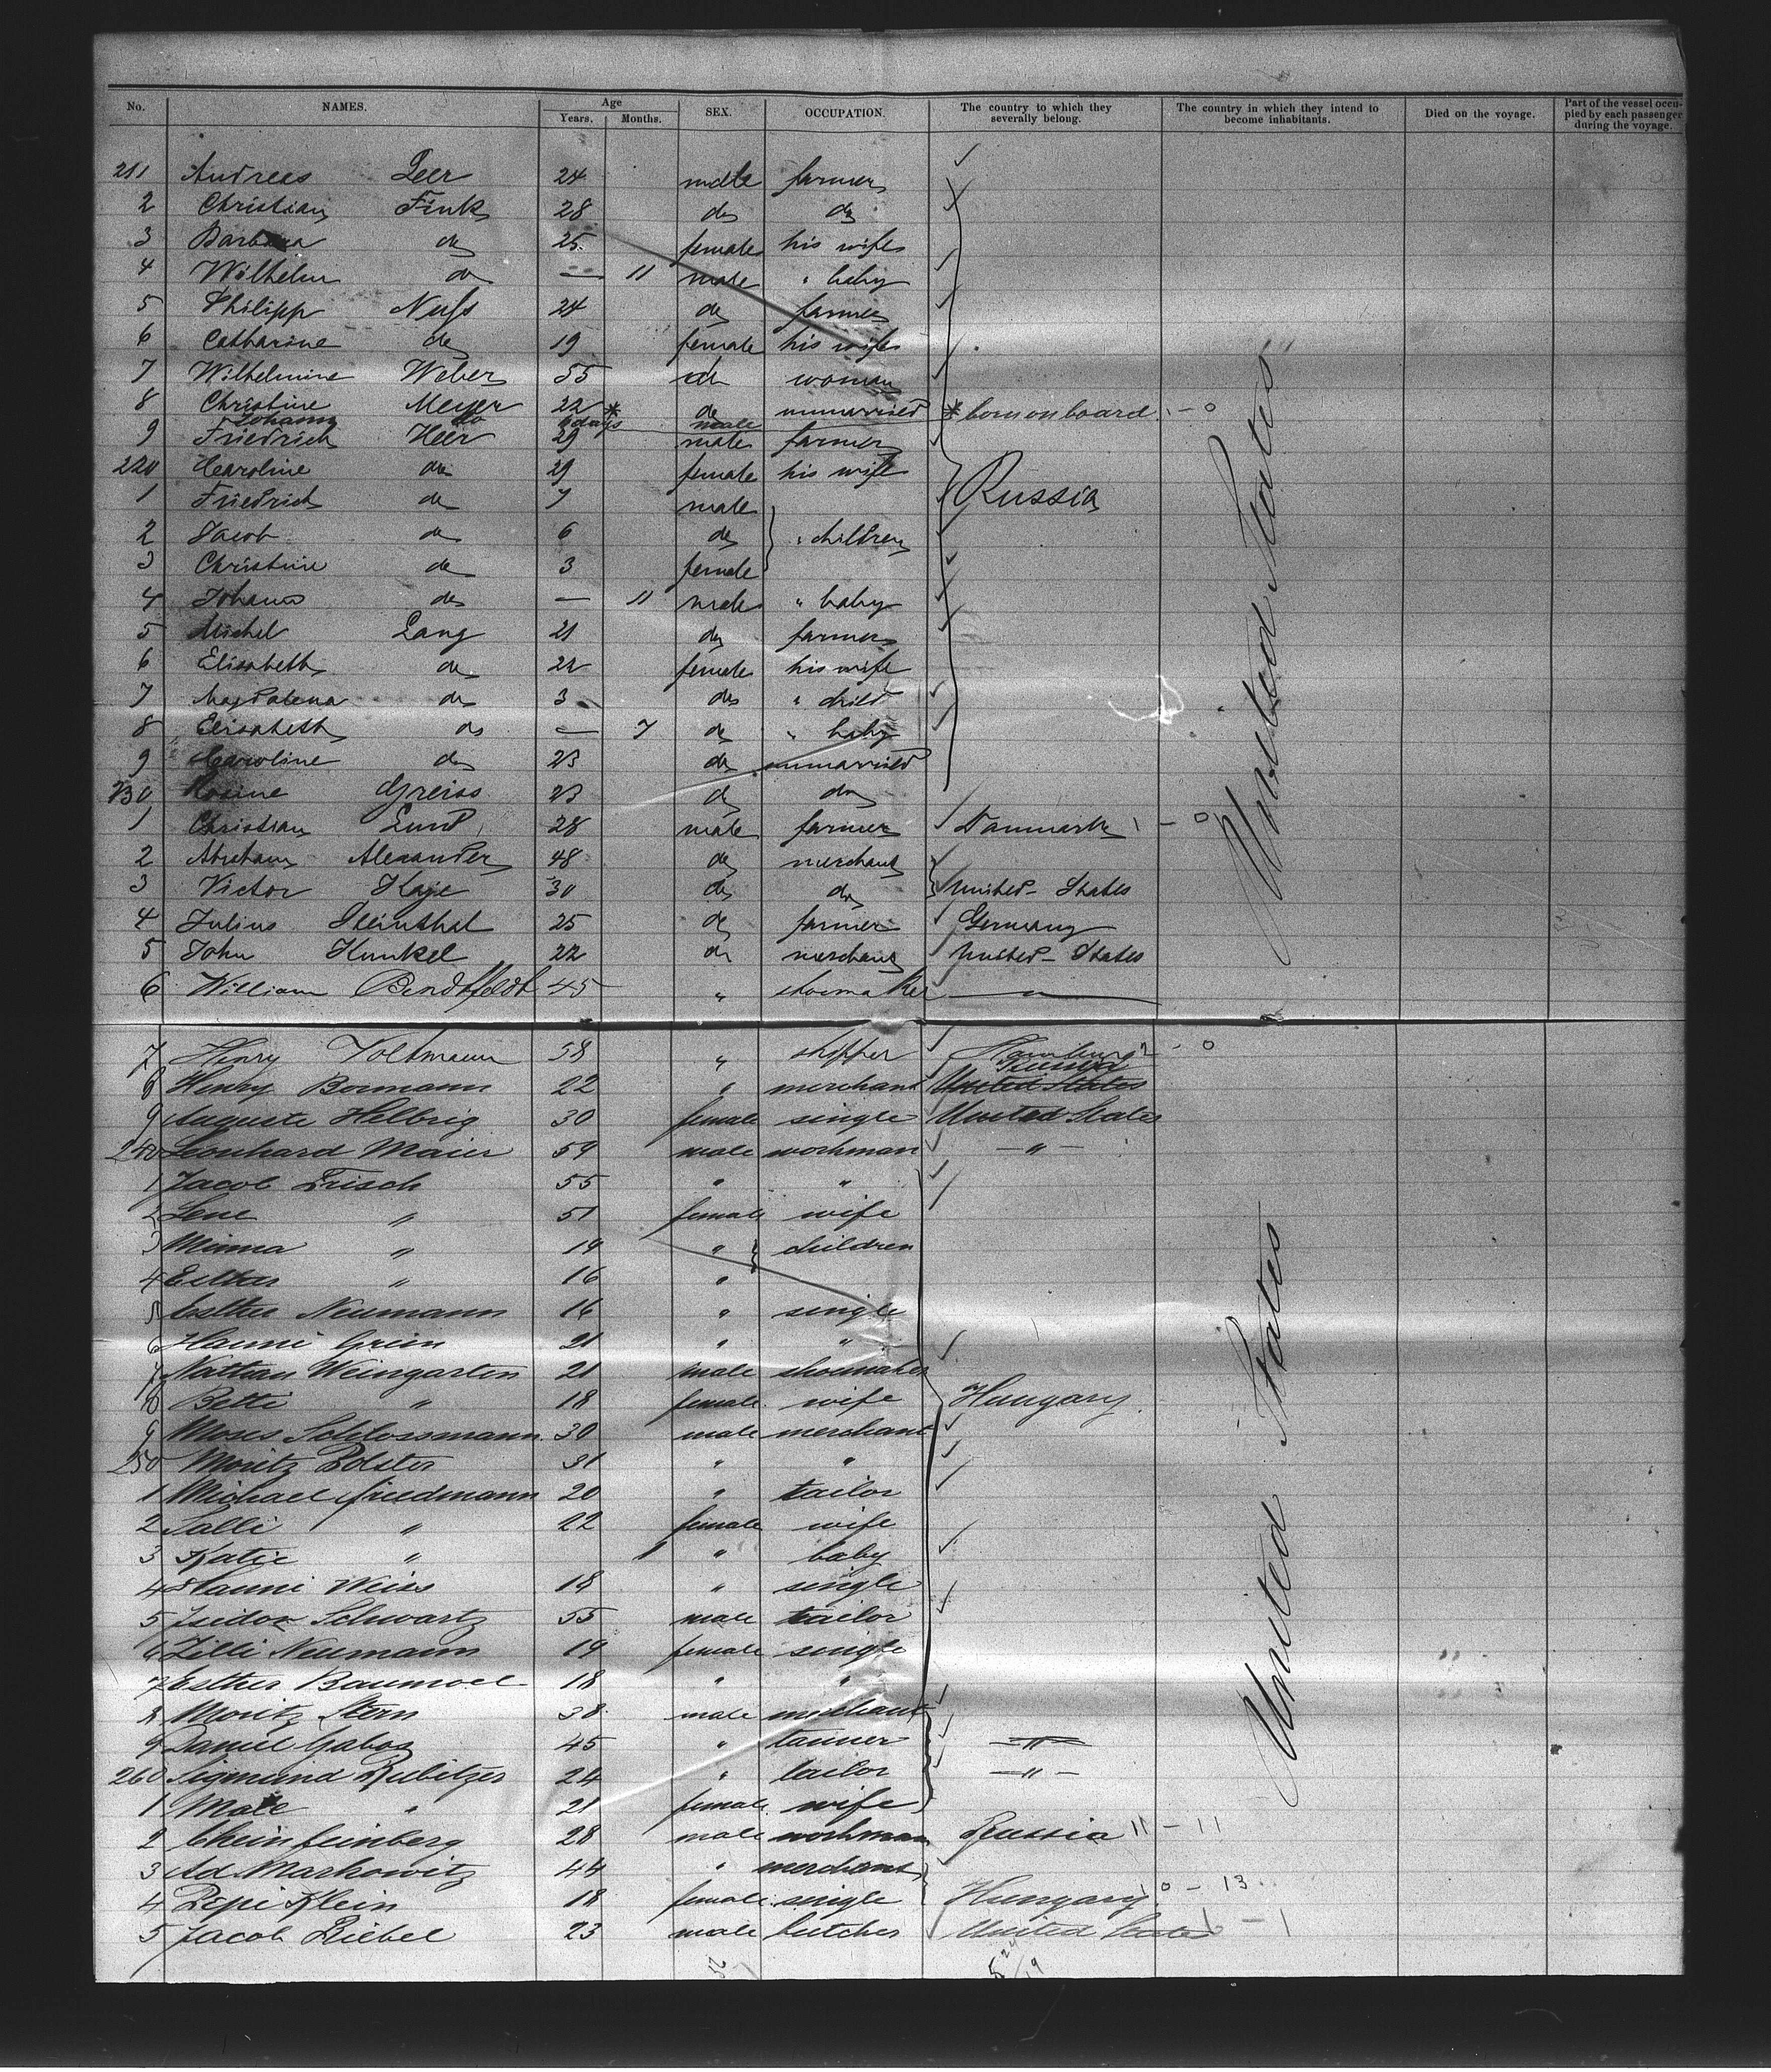 No. NAMES. Age Years. Months. SEX. OCCUPATION. The country to which they severally belong. The country in which they intend to become inhabitants. Died on the voyage. Part of the vessel occupied by each passenger during the voyage.
211 Andrees 24 male farmer
2 Christian Fink 28 do do
3 Barbara do 25 female his wife
4 Wilhelm do — 11 male " baby
5 Philipp Nuss 24 do farmer
6 Catharine do 19 female his wife
7 Wilhelmine Weber 55 do woman
8 Christine Meyer 22 * do unmarried * born on board 1 - 0
Johann do days male
9 Friedrich Heer 29 male farmer
220 Caroline do 29 female his wife
1 Friedrich do 7 male Russia
2 Jacob do 6 do " children
3 Christine do 3 female
4 Johann do — 11 male " baby
5 Michel Lang 21 do farmer
6 Elisabeth do 22 female his wife
7 Magdalena do 3 do " child
8 Elisabeth do — 7 do " baby
9 Caroline do 23 do unmarried
230 Rosine Greiss 23 do do
1 Christian Lund 28 male farmer Danmark 1 - 0
2 Abraham Alexander 48 do merchant
3 Victor Kaje 30 do do United-States
4 Julius 25 do farmer Germany
5 John Hunkel 22 do merchant United-States
6 William Bendtfeldt 45 " shoemaker —
United States
7 Henry Voltmann 58 " shipper Hamburg - 0
8 Henry Bormann 22 " merchant United States Russia
9 Auguste Helbrig 30 female single United States
240 Leonhard Maier 59 male workman - " -
1 Jacob Frisch 55 " "
2 Lene " 51 female wife
3 Minna " 19 " children
4 Esther " 16 "
5 Esther Neumann 16 " single
6 Hanni Grün 21 " "
7 Nathan Weingarten 21 male shoemaker
8 Betti " 18 female wife Hungary
9 Moses Schlossmann 30 male merchant
250 Moritz Polster 31 " "
1 Michael Friedmann 20 " tailor
2 Salli " 22 female wife
3 Katie " 1 " baby
4 Hanni Weiss 18 " single
5 Isidor Schwartz 55 male tailor
6 Zilli Neumann 19 female single
7 Esther Baumoel 18 " "
8 Moritz Stern 38 male merchant
9 Daniel Gabos 45 " tanner - " -
260 Sigmund Rubitzer 24 " tailor - " -
1 Male " 21 female wife
2 Chein Feinberg 28 male workman Russia 11 - 11
3 Ad. Markowitz 44 " merchant
4 Pepi Klein 18 female single Hungary 10 - 13
5 Jacob Riebel 23 male butcher United States 1 - 1
United States